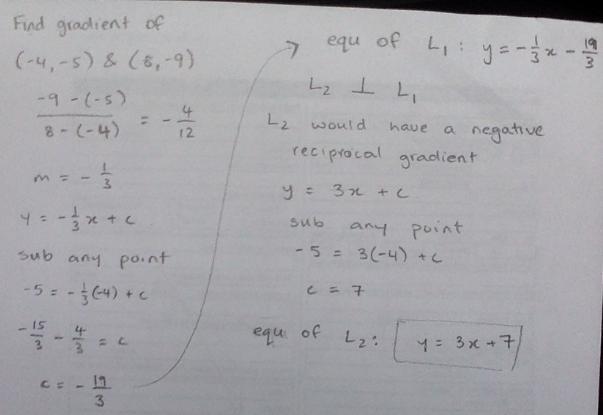 Find gradient of
(-4, -5) & (8, -9)
-9 - (-5) / 8 - (-4) = - 4/12
m = - 1/3
y = - 1/3 x + c
sub any point
-5 = - 1/3 (-4) + c
- 15/3 - 4/3 = c
c = - 19/3
equ of L₁ : y = - 1/3 x - 19/3
L₂ ⊥ L₁
L₂ would have a negative
reciprocal gradient
y = 3x + c
sub any point
-5 = 3(-4) + c
c = 7
equ of L₂: y = 3x + 7